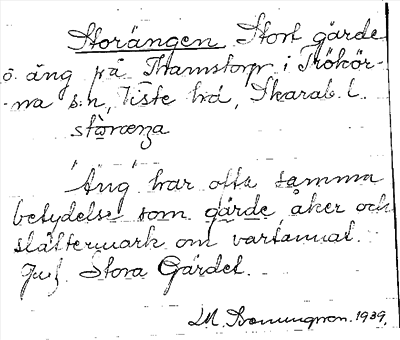 Storängen Stort gärde
o. äng på Thamstorp i Trökör-
-na s:n, Viste hd, Skarab. l.
stòræŋa
'Äng' har ofta samma
betydelse som gärde, åker och
slåttermark om vartannat.
Jmf. Stora Gärdet.
1939.